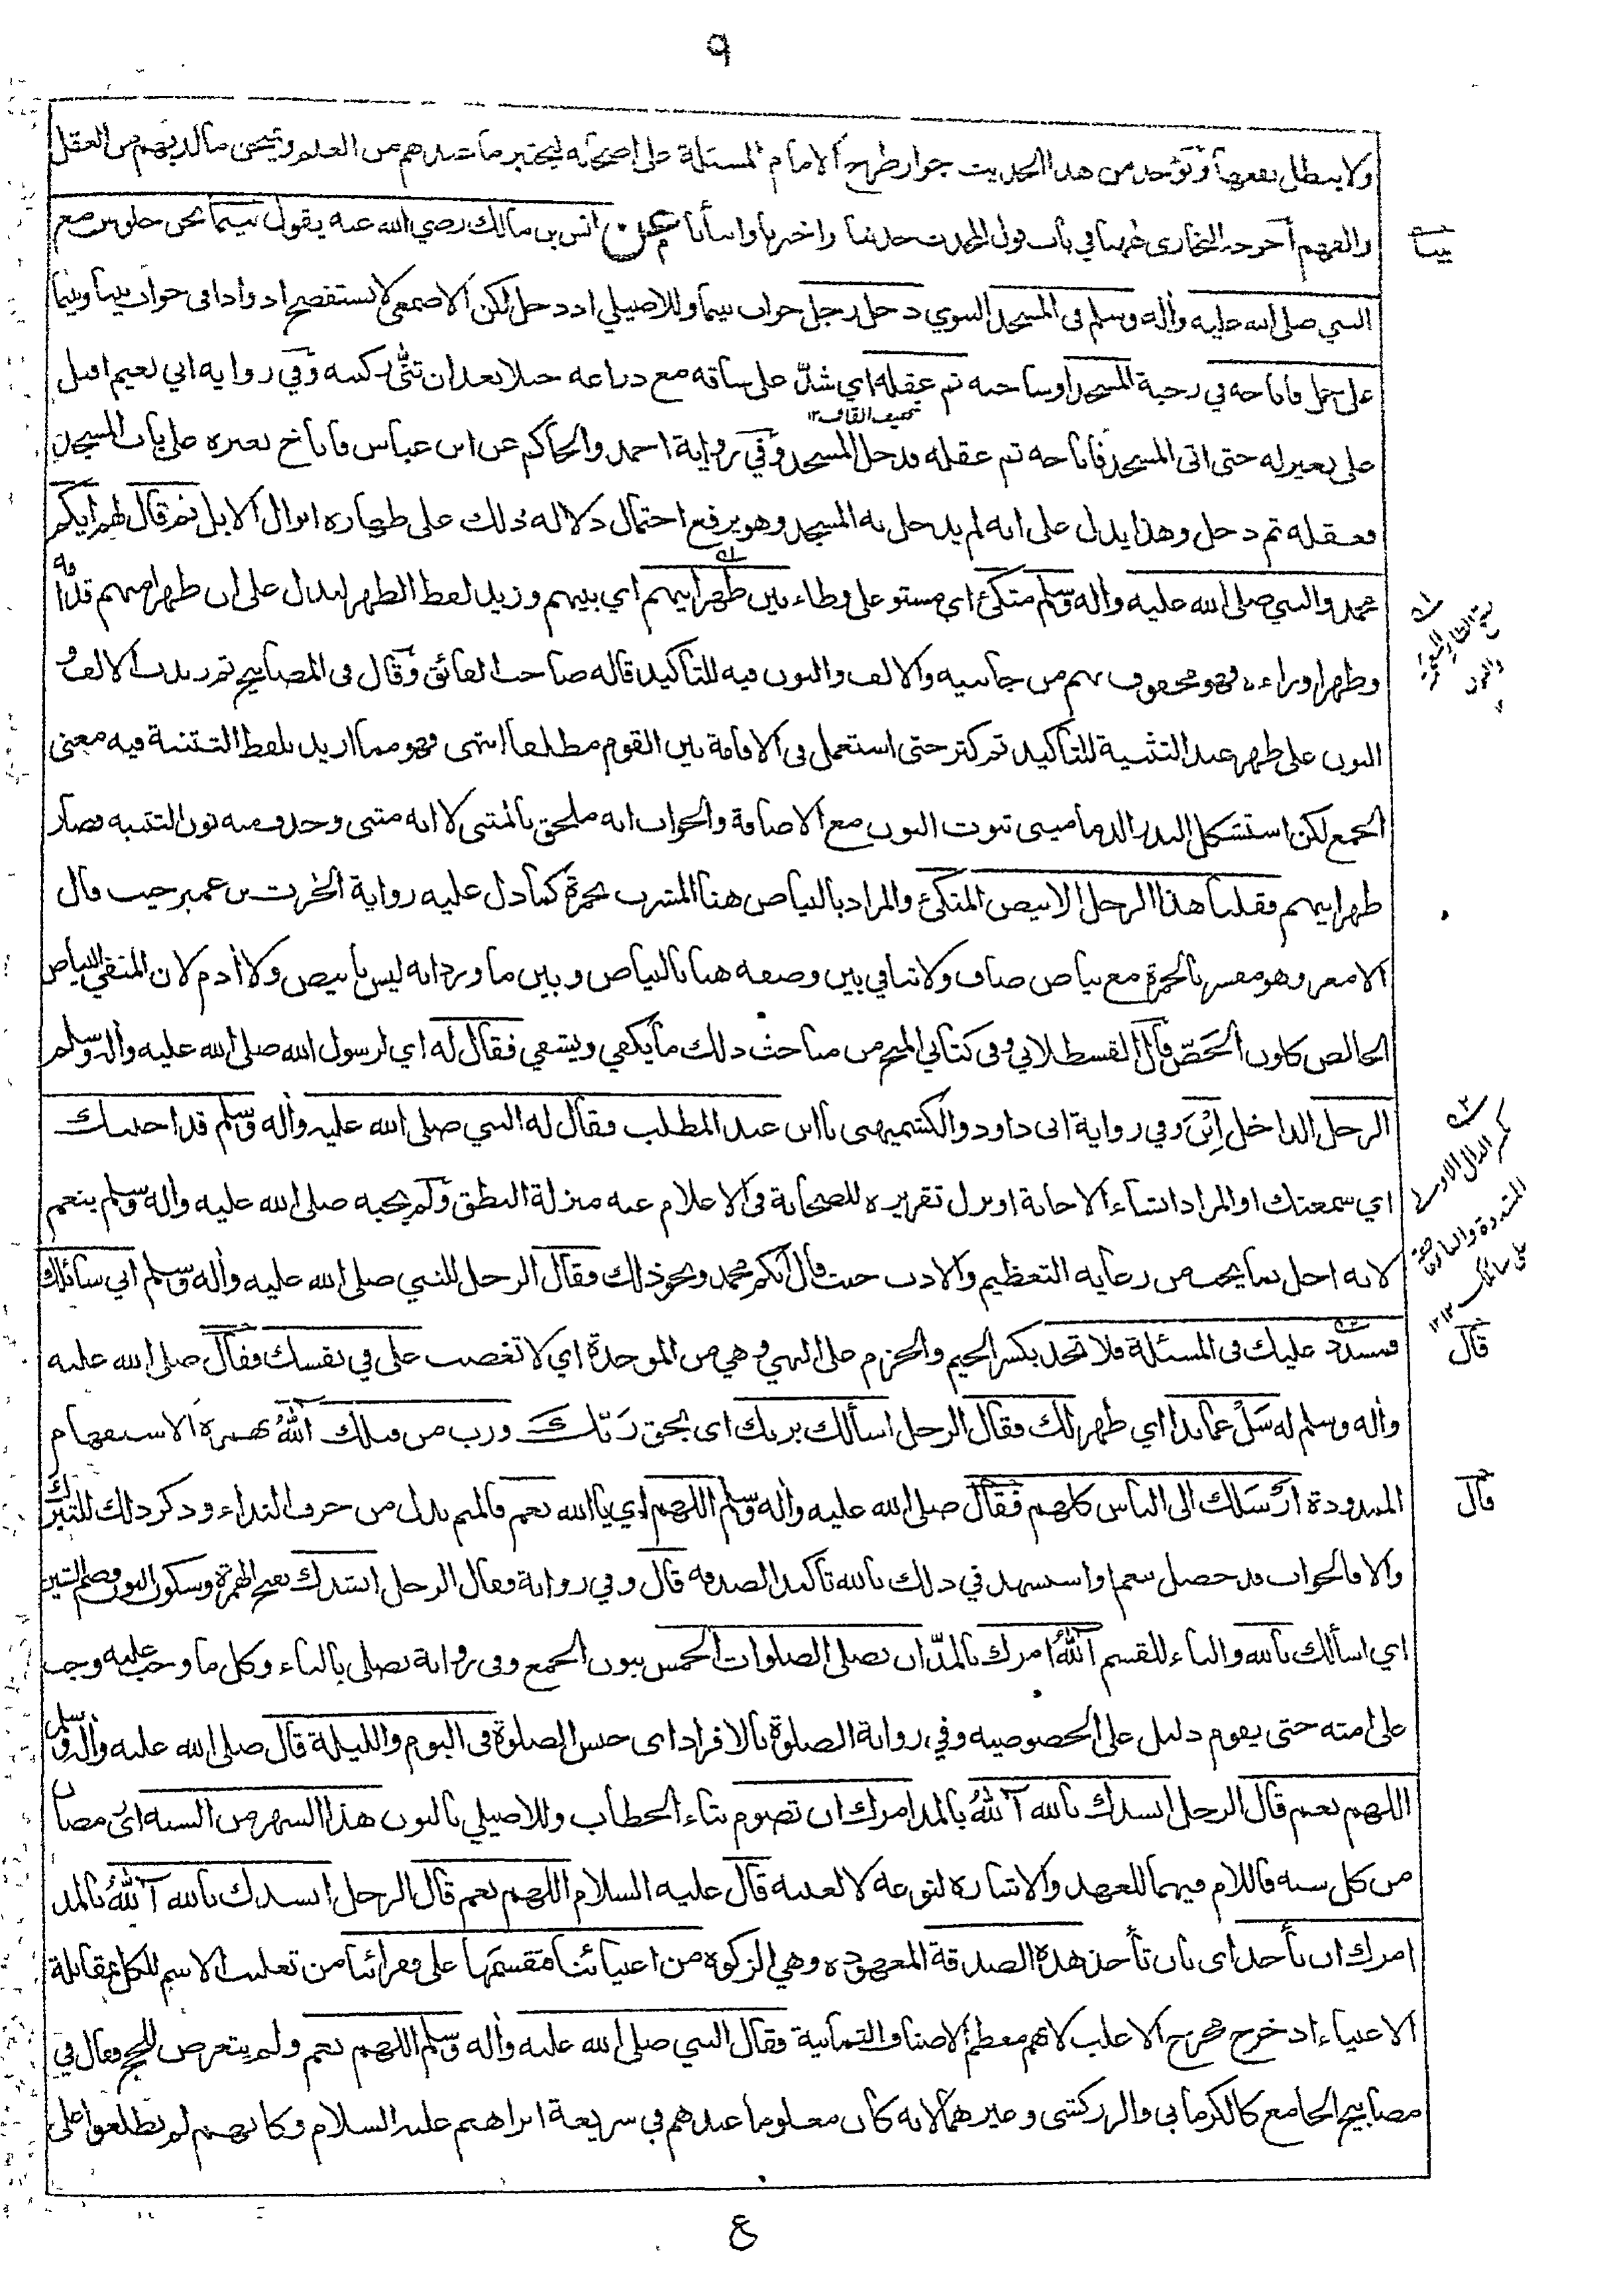 ٩
ولا يبطل نفعها ويؤخذ من هذا الحديث جواز طرح الامام المسئلة على اصحابه ليختبر ما عندهم من العلم ويمتحن ما لديهم من العقل
والفهم أخرجه البخارى ههنا في باب قول المحدث حدثنا واخبرنا وانبأنا عن انس بن مالك رضي الله عنه يقول بينما نحن جلوس مع
بينا
النبي صلى الله عليه وأله وسلم فى المسجد النبوي دخل رجل جواب بينما وللاصيلي اذ دخل لكن الاصمعي لا يستفصح اذ واذا فى جواب بينا وبينما
على جمل فاناخه في رحبة المسجد او ساحته ثم عقله اي شدّ على ساقه مع ذراعه حبلا بعد ان ثنّى ركبته وفي رواية ابي نعيم اقبل
بتخفيف القاف ١٢
على بعير له حتى اتى المسجد فاناخه ثم عقله فدخل المسجد وفي رواية احمد والحاكم عن ابن عباس فاناخ بعيره على باب المسجد
فعقله ثم دخل وهذا يدل على انه لم يدخل به المسجد وهو يرفع احتمال دلالة ذلك على طهارة ابوال الابل ثم قال لهم ايكم
محمد والنبي صلى الله عليه وأله وسلم متكئ اي مستو على وطاء بين ظهرانيهم اي بينهم وزيد لفظ الظهر ليدل على ان ظهرا منهم قدّامه
بفتح الظاء المعجمة والنون ١٢
وظهرا وراءه فهو محفوف بهم من جانبيه والالف والنون فيه للتأكيد قاله صاحب الفائق وقال فى المصابيح ثم زيدت الالف و
النون على ظهر عند التثنية للتأكيد ثم كثر حتى استعمل فى الاقامة بين القوم مطلقا انتهى فهو مما اريد بلفظ التثنية فيه معنى
الجمع لكن استشكل البدر الدماميني ثبوت النون مع الاضافة والجواب انه ملحق بالمثنى لا انه مثنى وحذف منه نون التثنية فصار
ظهرانيهم فقلنا هذا الرجل الابيض المتكئ والمراد بالبياض هنا المشرب بحمرة كما دل عليه رواية الحٰرث بن عمير حيث قال
الامغر وهو مفسر بالحمرة مع بياض صاف ولا تنافي بين وصفه هنا بالبياض وبين ما ورد انه ليس بابيض ولا أدم لان المنفي البياض
الخالص كلون الجَصّ قال القسطلاني وفى كتابي المنح من مباحث ذلك ما يكفي ويشفي فقال له اي لرسول الله صلى الله عليه وأله وسلم
الرجل الداخل اِبْنَ وفي رواية ابى داود والكشميهنى يا ابن عبد المطلب فقال له النبي صلى الله عليه وأله وسلم قد اجبتك
اي سمعتك او المراد انشاء الاجابة او نزل تقريره للصحابة فى الاعلام عنه منزلة النطق ولم يجبه صلى الله عليه وأله وسلم بنعم
لانه اخل بما يجب من رعاية التعظيم والادب حيث قال ايكم محمد ونحو ذلك فقال الرجل للنبي صلى الله عليه وأله وسلم اني سائلك
بكسر الدال الاولى المشددة والفاء عاطفة على سائلك ١٢
فمشدد عليك فى المسئلة فلا تجد بكسر الجيم والجزم على النهي وهي من الموجدة اي لا تغضب على في نفسك فقال صلى الله عليه
قال
وأله وسلم له سَلْ عما بدا اي ظهر لك فقال الرجل اسألك بربك اى بحق رَبّك ورب من قبلك آللّٰهُ بهمزة الاستفهام
الممدودة ارْسَلك الى الناس كلهم فقال صلى الله عليه وأله وسلم اللهم اي يا الله نعم فالميم بدل من حرف النداء وذكر ذلك للتبرّك
قال
والا فالجواب قد حصل بنعم او استشهد في ذلك بالله تأكيدا لصدقه قال وفي رواية فقال الرجل انشدك بفتح الهمزة وسكون النون وضم الشين
اي اسألك بالله والباء للقسم آللّٰهُ امرك بالمدّ ان نصلى الصلوات الخمس بنون الجمع وفى رواية تصلى بالتاء وكل ما وجب عليه وجب
على امته حتى يقوم دليل على الخصوصية وفي رواية الصلوة بالافراد اى جنس الصلوة فى اليوم والليلة قال صلى الله عليه وأله وسلم
اللهم نعم قال الرجل انشدك بالله آللّٰهُ بالمد امرك ان تصوم بتاء الخطاب وللاصيلي بالنون هذا الشهر من السنة اى رمضان
من كل سنة فاللام فيهما للعهد والاشارة لنوعه لا لعينه قال عليه السلام اللهم نعم قال الرجل انشدك بالله آللّٰهُ بالمد
امرك ان تأخذ اى بان تأخذ هذه الصدقة المعهودة وهي الزكوة من اغنيائنا فتقسمها على فقرائنا من تغليب الاسم للكل بمقابلة
الاغنياء اذ خرج مخرج الاغلب لانهم معظم الاصناف الثمانية فقال النبي صلى الله عليه وأله وسلم اللهم نعم ولم يتعرض للحج فقال في
مصابيح الجامع كالكرماني والزركشى وغيرهما لانه كان معلوما عندهم في شريعة ابراهيم عليه السلام وكانهم لم يطلعوا على
ع